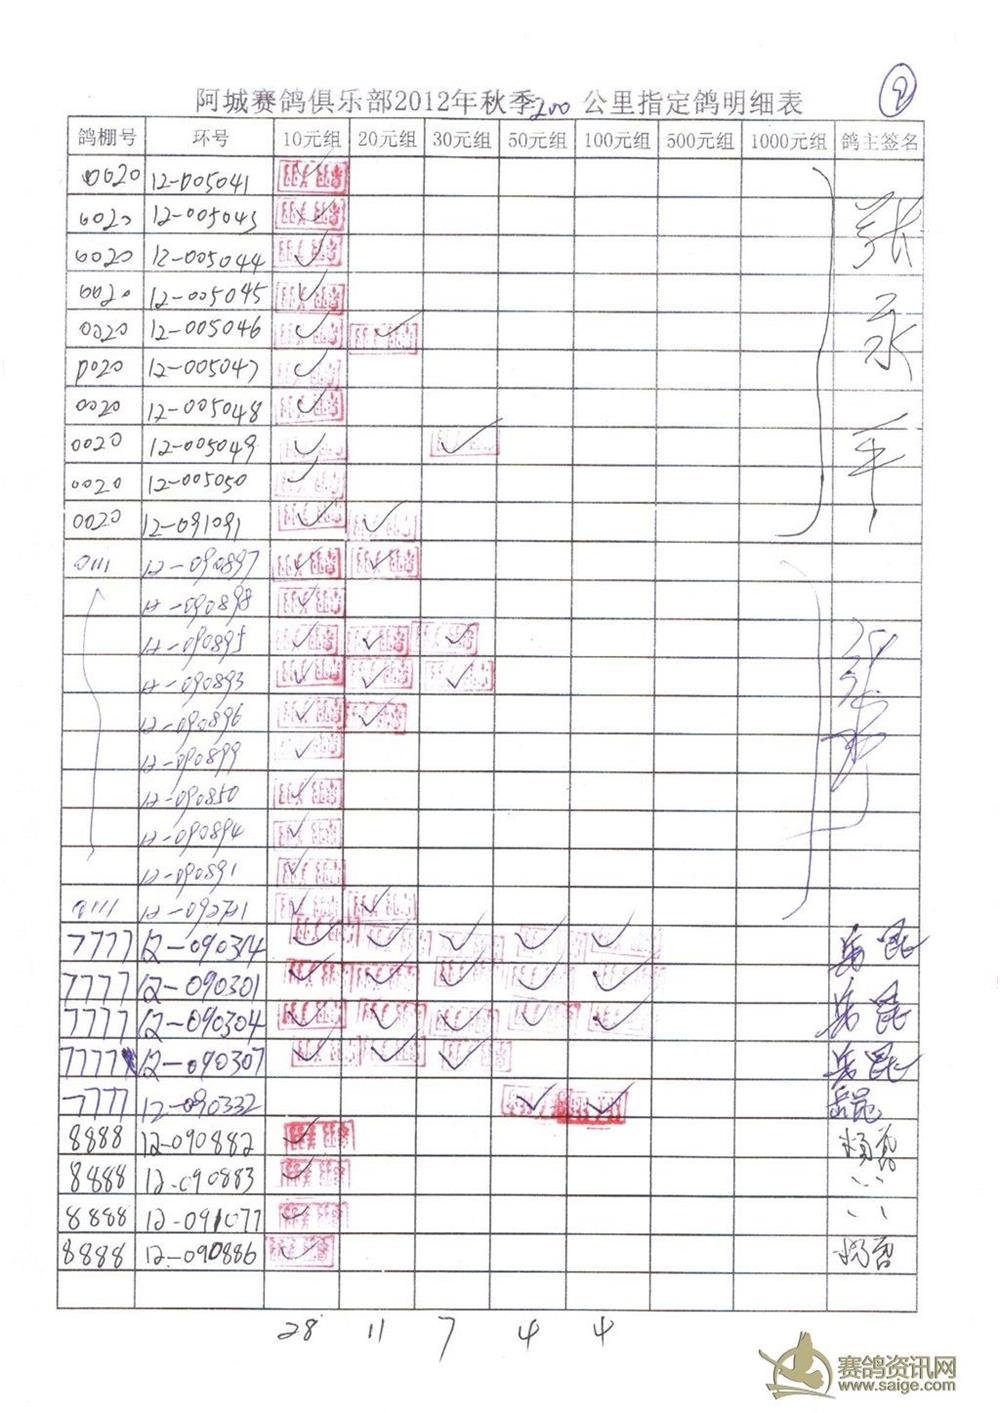 阿城赛鸽俱乐部2012年秋季200公里指定鸽明细表
鸽棚号 环号 10元组 20元组 30元组 50元组 100元组 500元组 1000元组 鸽主签名
0020 12-005041
0020 12-005043 ✓
0020 12-005044 ✓
0020 12-005045 ✓
0020 12-005046 ✓ ✓
0020 12-005047 ✓
0020 12-005048 ✓
0020 12-005049 ✓ ✓
0020 12-005050 ✓
0020 12-091091 ✓ ✓
张永平
0111 12-090897 ✓ ✓
12-090898 ✓
12-090895 ✓ ✓ ✓
12-090893 ✓ ✓ ✓
12-090896 ✓ ✓
12-090899 ✓
12-090850 ✓
12-090894 ✓
12-090891 ✓
0111 12-092721 ✓ ✓
7777 12-090314 ✓ ✓ ✓ ✓ ✓ 岳昆
7777 12-090301 ✓ ✓ ✓ ✓ ✓
7777 12-090304 ✓ ✓ ✓ ✓ ✓ 岳昆
7777 12-090307 ✓ ✓ ✓ 岳昆
7777 12-090332 ✓ ✓ 岳昆
8888 12-090882 ✓
8888 12-090883 ✓ 、、
8888 12-091077 ✓ 、、
8888 12-090886 ✓
28 11 7 4 4
赛鸽资讯网
www.saige.com